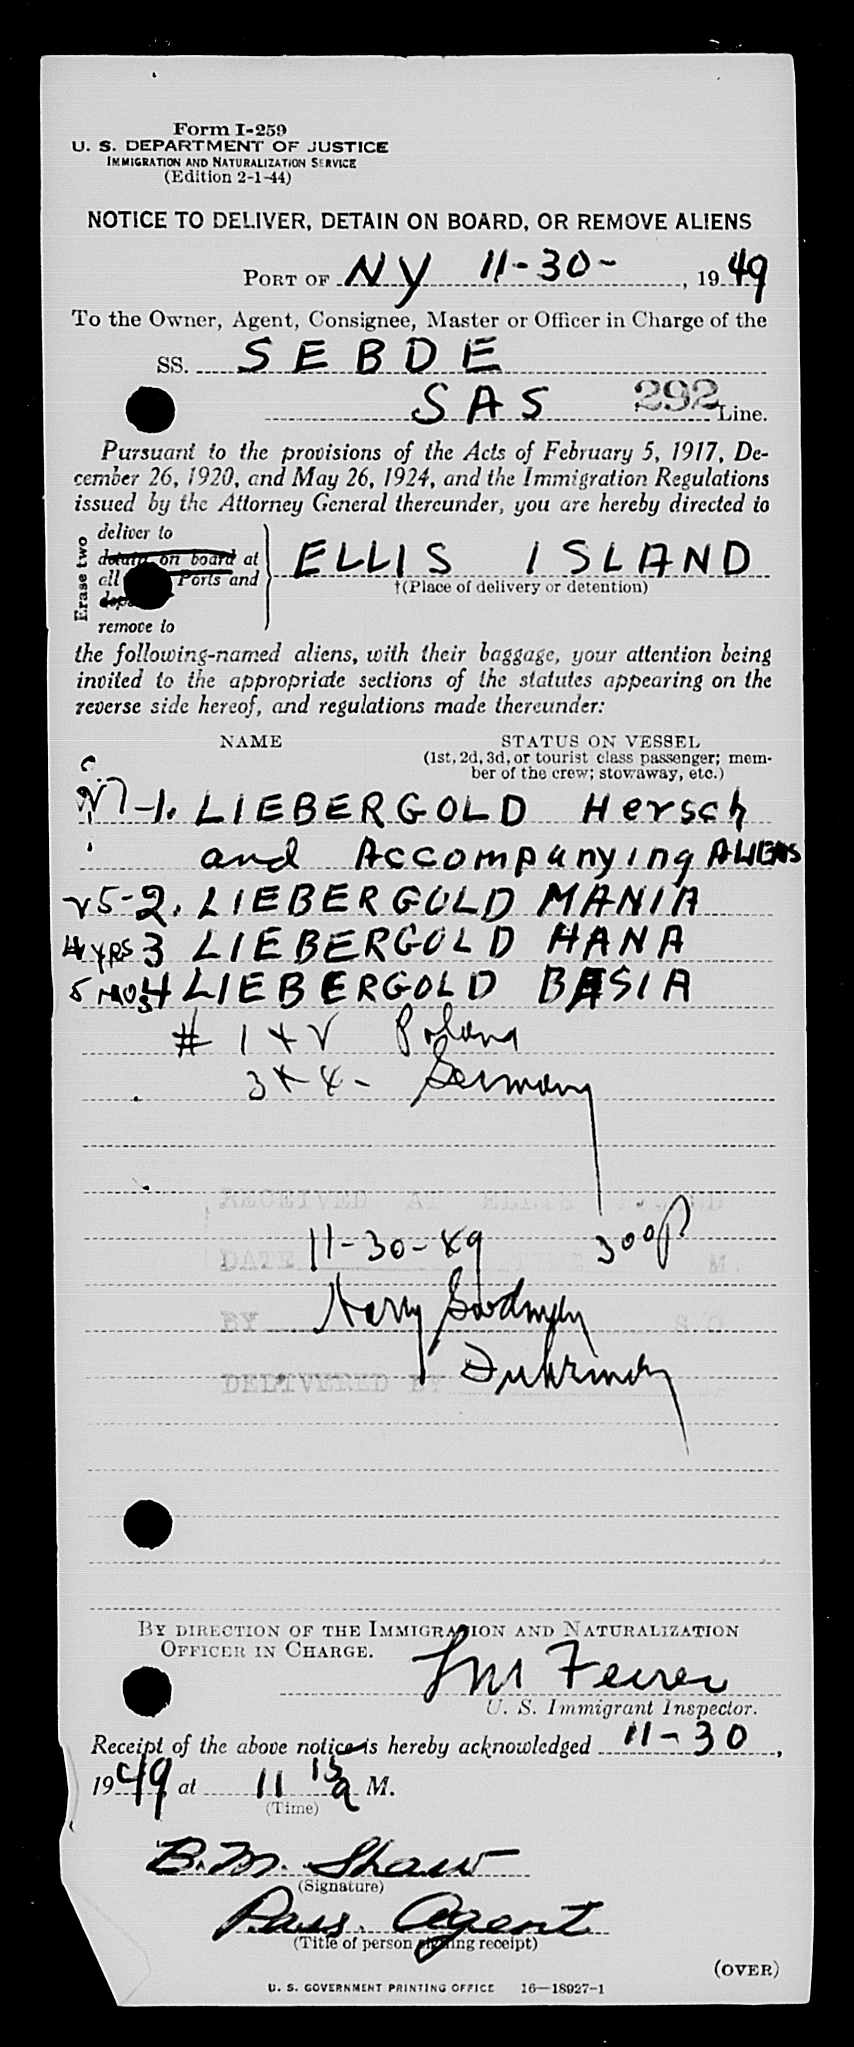 Form I-259
U. S. DEPARTMENT OF JUSTICE
IMMIGRATION AND NATURALIZATION SERVICE
(Edition 2-1-44)
NOTICE TO DELIVER, DETAIN ON BOARD, OR REMOVE ALIENS
PORT OF NY 11-30-, 1949
To the Owner, Agent, Consignee, Master or Officer in Charge of the
SS. SEBDE
SAS 292 Line.
Pursuant to the provisions of the Acts of February 5, 1917, De-
cember 26, 1920, and May 26, 1924, and the Immigration Regulations
issued by the Attorney General thereunder, you are hereby directed to
Erase two
deliver to
detain on board at
all Ports and
remove to
ELLIS ISLAND
†(Place of delivery or detention)
the following-named aliens, with their baggage, your attention being
invited to the appropriate sections of the statutes appearing on the
reverse side hereof, and regulations made thereunder:
NAME STATUS ON VESSEL
(1st, 2d, 3d, or tourist class passenger; mem-
ber of the crew; stowaway, etc.)
-1. LIEBERGOLD Hersch
and Accompanying ALIENS
25-2. LIEBERGOLD MANIA
4 yrs 3 LIEBERGOLD HANA
5 mos 4 LIEBERGOLD BASIA
# 1 + 2 Poland
3 + 4 - Germany
RECEIVED AT ELLIS ISLAND
11-30-49 300P
DATE M.
Harry Goodman
BY
Fuhrman
DELIVERED BY
BY DIRECTION OF THE IMMIGRATION AND NATURALIZATION
OFFICER IN CHARGE.
U. S. Immigrant Inspector.
Receipt of the above notice is hereby acknowledged 11-30,
1949 at 11 15 a M.
(Time)
B. M. Shaw
(Signature)
Pass. Agent
(Title of person signing receipt)
(OVER)
U. S. GOVERNMENT PRINTING OFFICE 16—18927-1